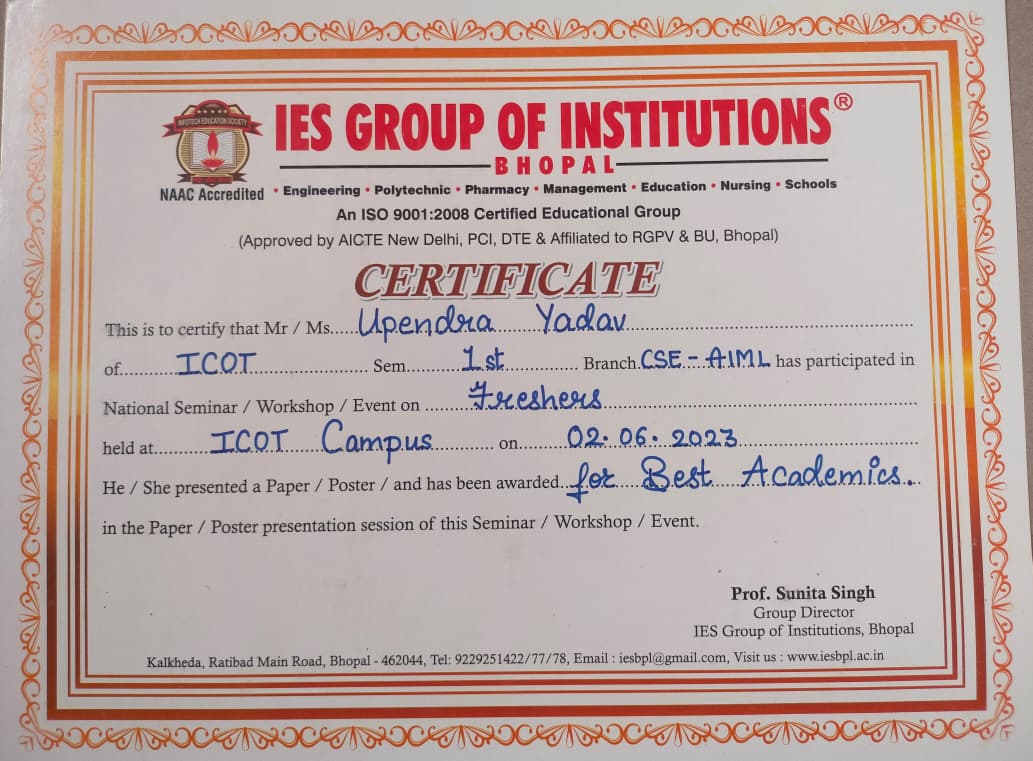 INFOTECH EDUCATION SOCIETY
IES GROUP OF INSTITUTIONS®
BHOPAL
NAAC Accredited
• Engineering • Polytechnic • Pharmacy • Management • Education • Nursing • Schools
An ISO 9001:2008 Certified Educational Group
(Approved by AICTE New Delhi, PCI, DTE & Affiliated to RGPV & BU, Bhopal)
CERTIFICATE
This is to certify that Mr / Ms..... Upendra Yadav
of ICOT Sem 1st Branch CSE-AIML has participated in
National Seminar / Workshop / Event on Freshers
held at ICOT Campus on 02.06.2023
He / She presented a Paper / Poster / and has been awarded for Best Academics.
in the Paper / Poster presentation session of this Seminar / Workshop / Event.
Prof. Sunita Singh
Group Director
IES Group of Institutions, Bhopal
Kalkheda, Ratibad Main Road, Bhopal - 462044, Tel: 9229251422/77/78, Email : iesbpl@gmail.com, Visit us : www.iesbpl.ac.in